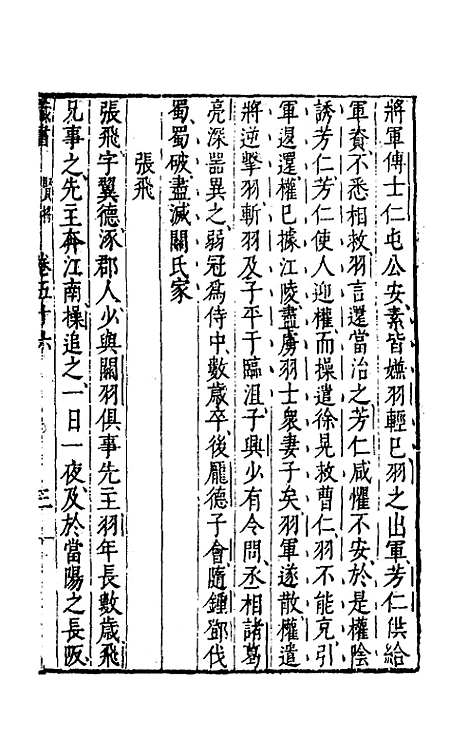 將軍傅士仁屯公安素皆嫌羽輕已羽之出軍芳仁供給
軍資不悉相救羽言還當治之芳仁咸懼不安於是權陰
誘芳仁芳仁使人迎權而操遣徐晃救曹仁羽不能克引
軍退還權已據江陵盡虜羽士衆妻子矣羽軍遂散權遣
將逆擊羽斬羽及子平于臨沮子興少有令問丞相諸葛
亮深噐異之弱冠爲侍中數歲卒後龎德子會隨鍾鄧伐
蜀蜀破盡滅關氏家
張飛
張飛字翼德涿郡人少與關羽俱事先主羽年長數歲飛
兄事之先主奔江南操追之一日一夜及於當陽之長阪
卷五十六
三